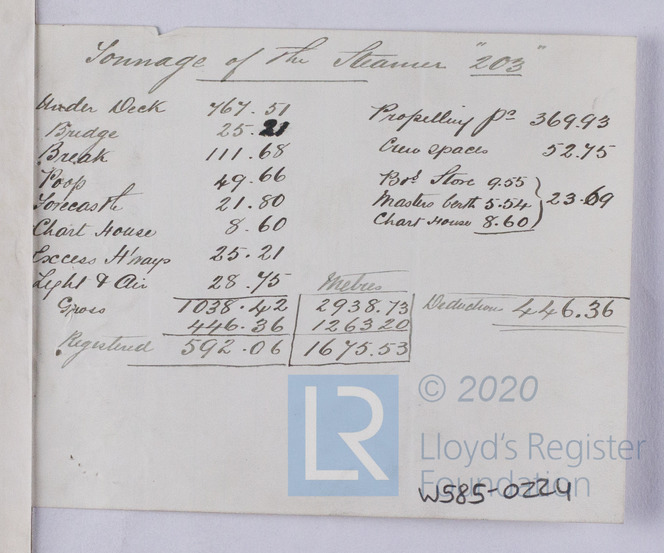 Tonnage of the Steamer "203"
Under Deck 767.51
Bridge 25.21
Break 111.68
Poop 49.66
Forecastle 21.80
Chart House 8.60
Excess H'ways 25.21
Light & Air 28.75
Gross 1038.42
446.36
Registered 592.06
Metres
2938.73
1263.20
1675.53
Propelling pr 369.93
Crew spaces 52.75
Bos. Store 9.55
Masters berth 5.54
Chart House 8.60
23.69
Deductions 446.36
LR
© 2020
Lloyd's Register
Foundation
W585-0224